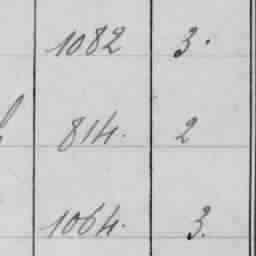 1082 3.
814. 2
1064. 3.